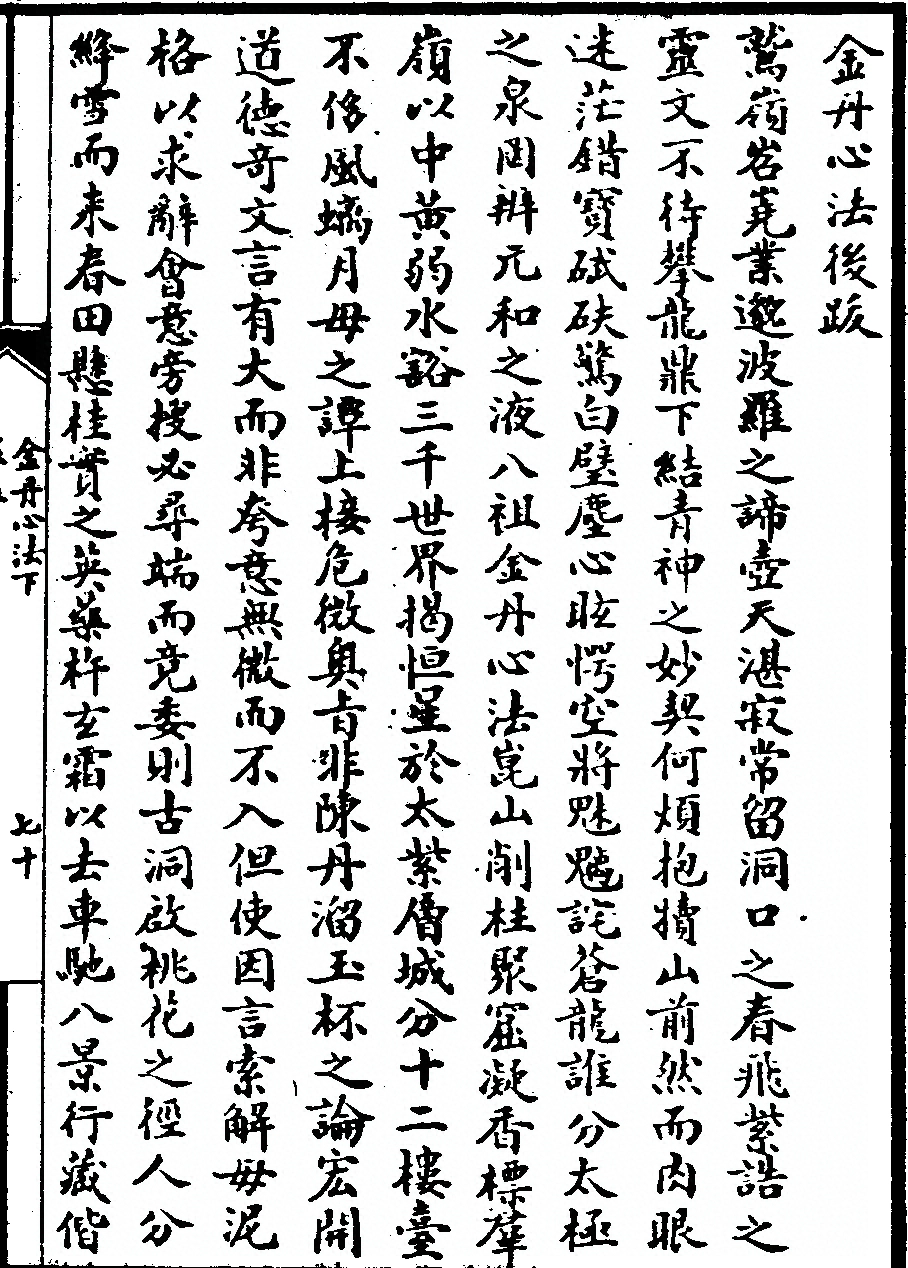 金丹心法後跋
鷲嶺岧嶤業邀波羅之諦壺天湛寂常留洞口之春飛紫誥之
靈文不待攀龍鼎下結青神之妙契何煩抱犢山前然而肉眼
迷茫錯寶碔砆驚白璧塵心眩愕空將魅魑詫蒼龍誰分太極
之泉罔辨元和之液八祖金丹心法崑山削柱聚窟凝香標羣
嶺以中黃弱水豁三千世界揭恒星於太紫層城分十二樓臺
不侈風螭月母之譚上接危微奧旨非陳丹溜玉杯之論宏開
道德奇文言有大而非夸意無微而不入但使因言索解毋泥
格以求辭會意旁搜必尋端而竟委則古洞啟桃花之徑人分
絳雪而來春田懸桂實之英藥杵玄霜以去車馳八景行藏偕
金丹心法下
七十